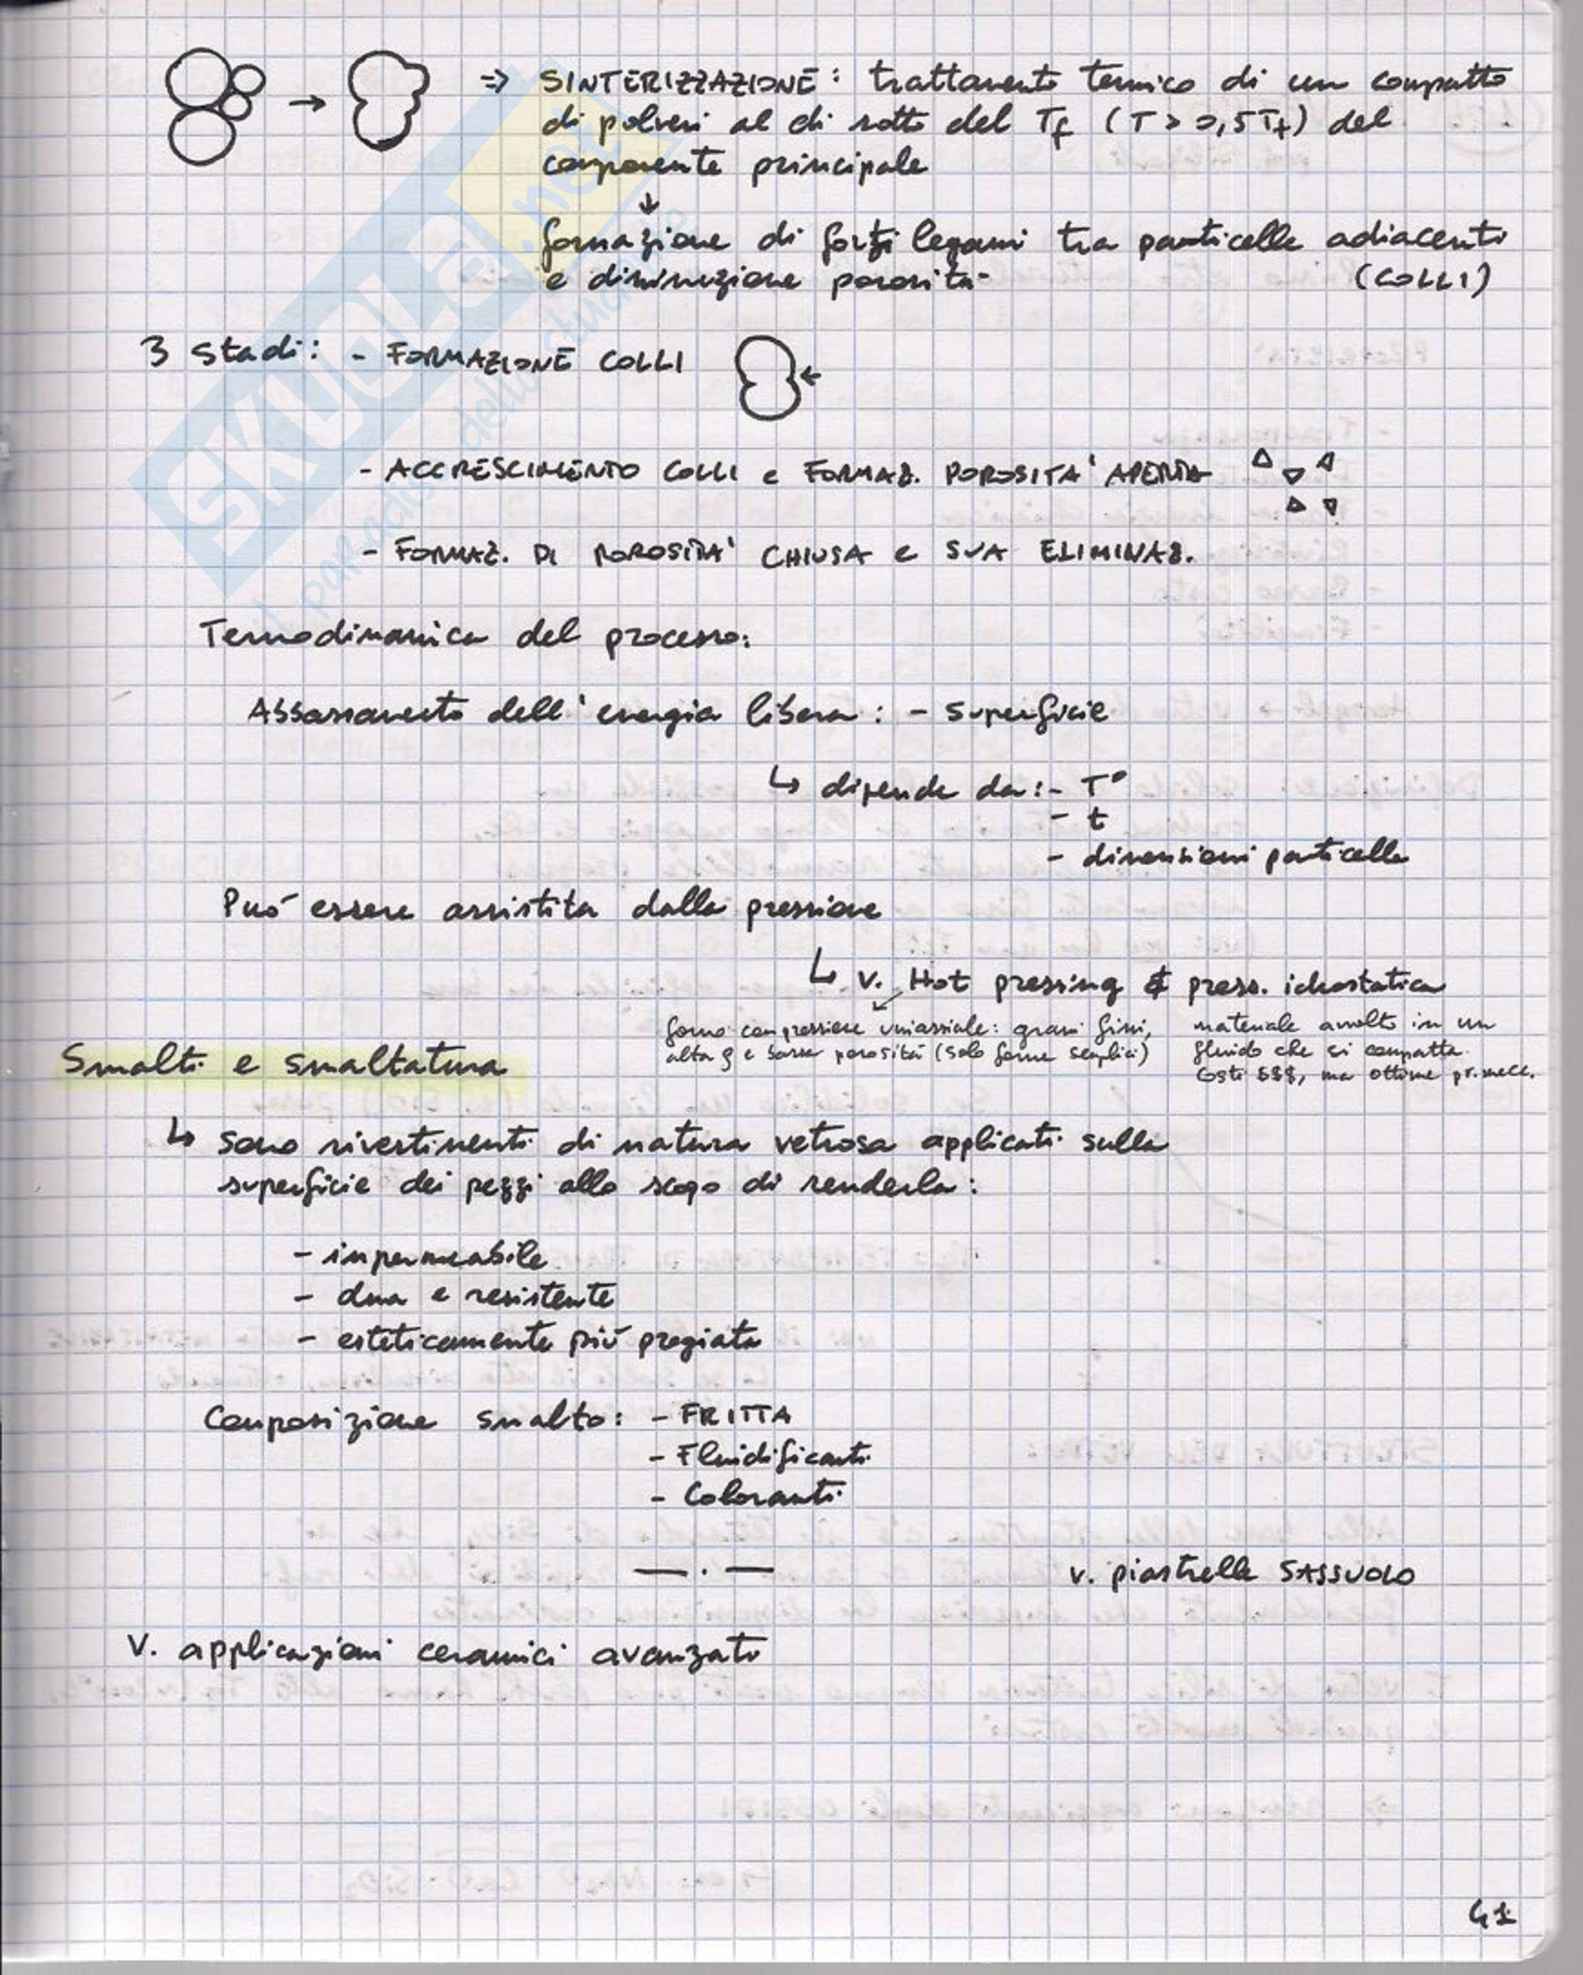 ⇒ SINTERIZZAZIONE: trattamento termico di un compatto
di polveri al di sotto del Tf (T > 0,5 Tf) del
componente principale
↓
formazione di forti legami tra particelle adiacenti
e diminuzione porosità (COLLI)
3 stadi: - FORMAZIONE COLLI
- ACCRESCIMENTO COLLI e FORMAZ. POROSITA' APERTA
- FORMAZ. DI POROSITA' CHIUSA e SUA ELIMINAZ.
Termodinamica del processo:
Abbassamento dell'energia libera: - superficie
↳ dipende da: - T°
- t
- dimensioni particelle
Può essere assistita dalla pressione
↳ v. Hot pressing & press. isostatica
forno compressione uniassiale: grani fini,
alta ρ e bassa porosità (solo forme semplici)
materiale avvolto in un
fluido che si compatta.
Costi $$$, ma ottime pr. mecc.
Smalti e smaltatura
↳ sono rivestimenti di natura vetrosa applicati sulla
superficie dei pezzi allo scopo di renderla:
- impermeabile
- dura e resistente
- esteticamente più pregiata
Composizione smalto: - FRITTA
- Fluidificanti
- Coloranti
— . —
v. piastrelle SASSUOLO
V. applicazioni ceramici avanzati
41
SKUOLA.net